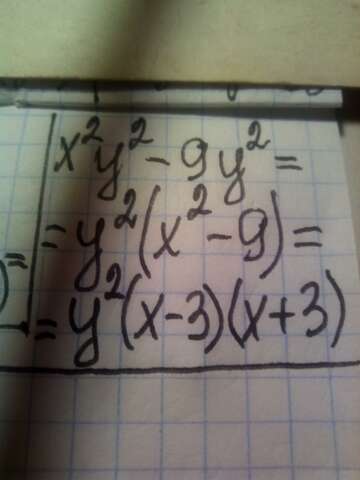 x²y² - 9y² =
= = y²(x² - 9) =
) = y²(x-3)(x+3)